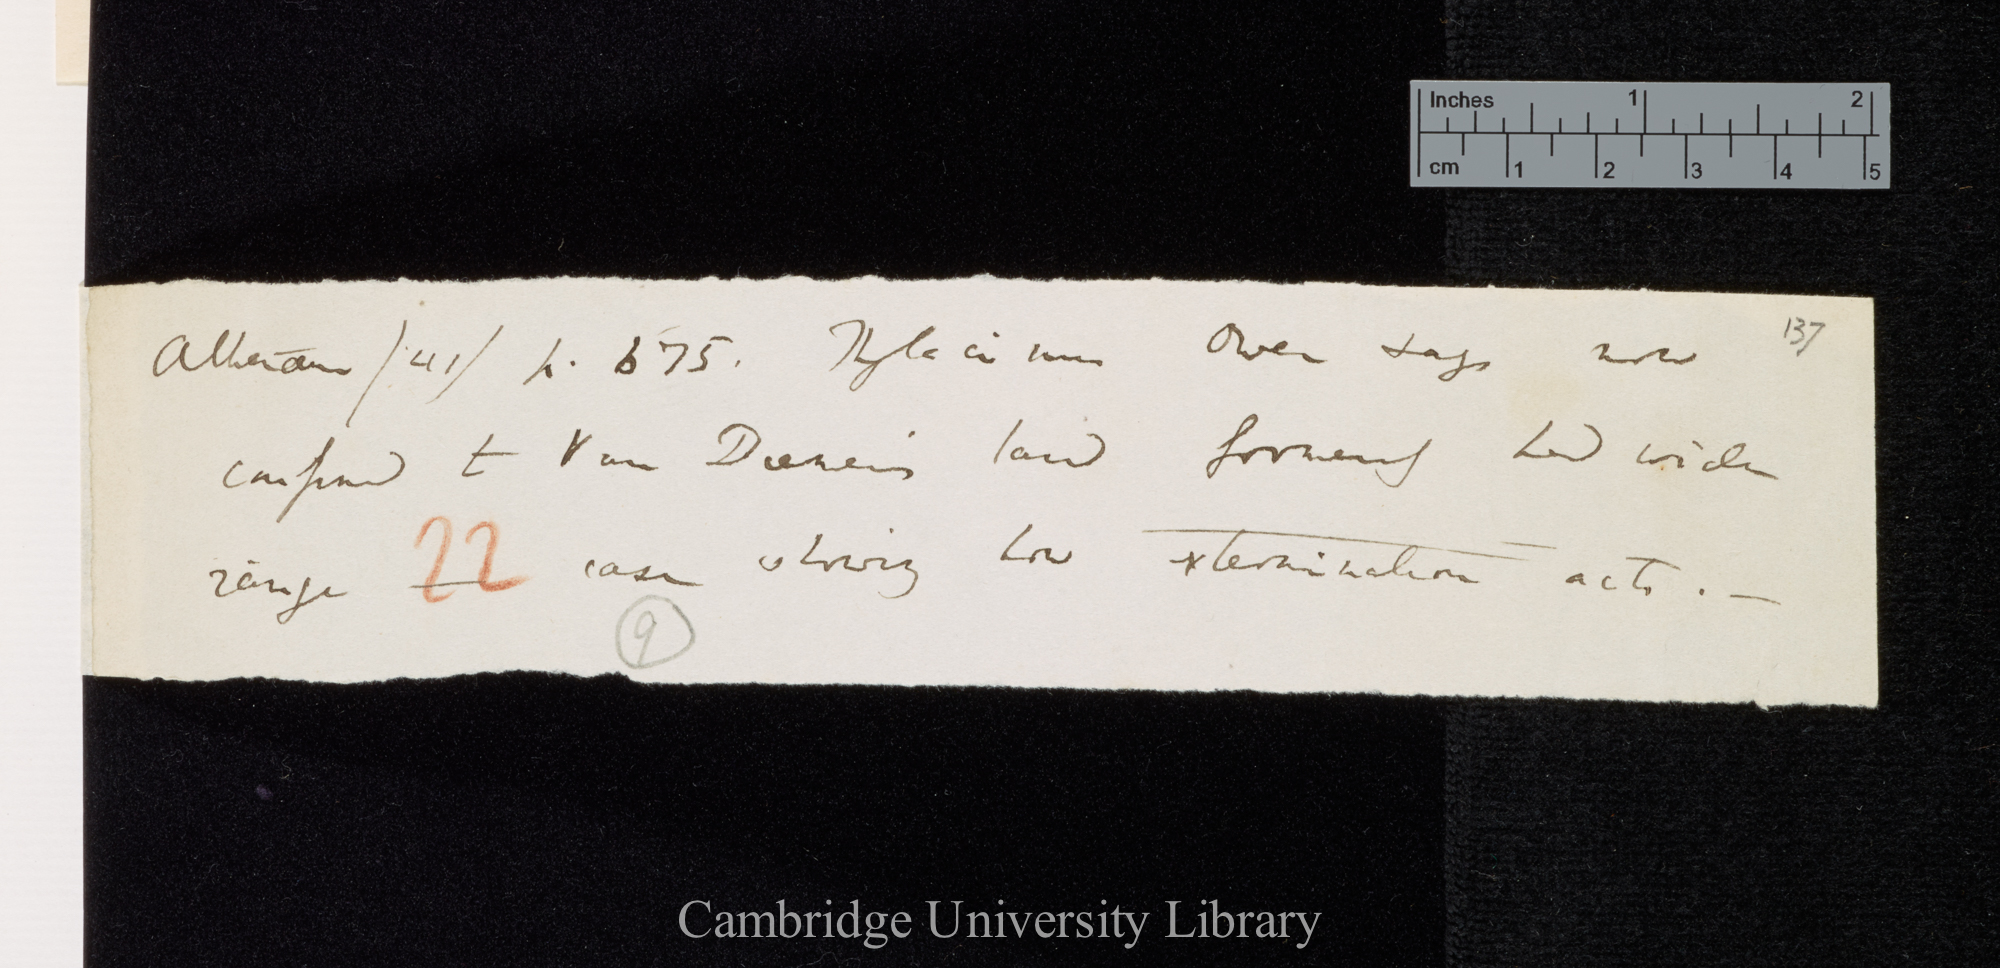 Inches 1 2
cm 1 2 3 4 5
137
Athenæum /41/ p. 675. Thylacinus Owen says now
confined to Van Diemen's land formerly had wider
range — case showing how extermination acts. —
22
9
Cambridge University Library